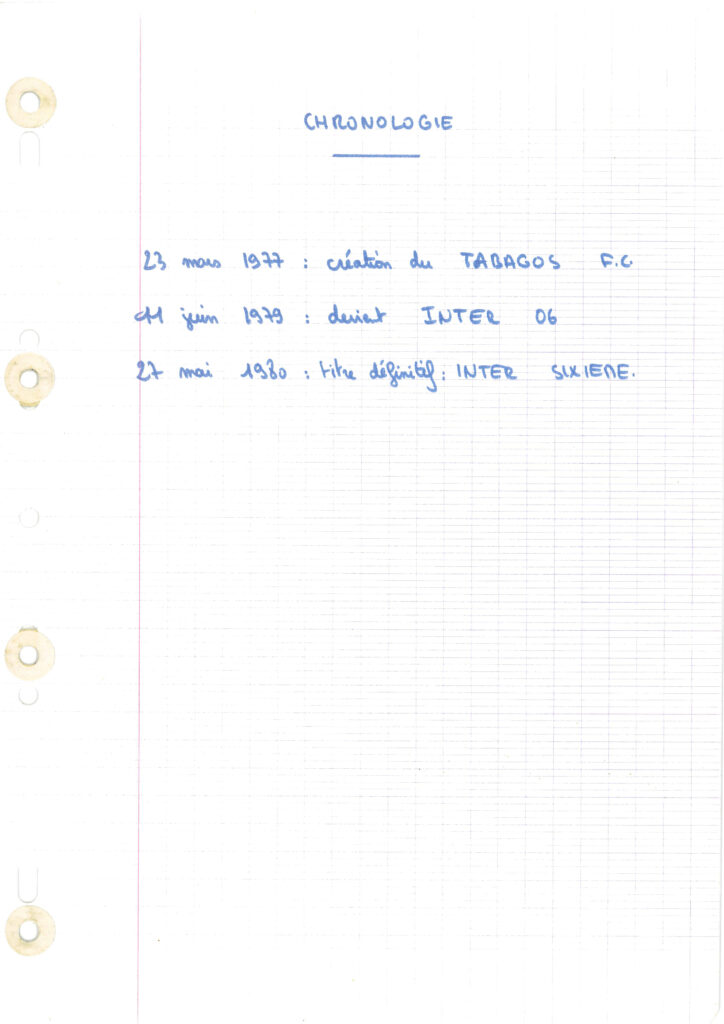 CHRONOLOGIE
23 mars 1977 : création du TABAGOS F.C
11 juin 1979 : devient INTER 06
27 mai 1980 : titre définitif : INTER SIXIEME.